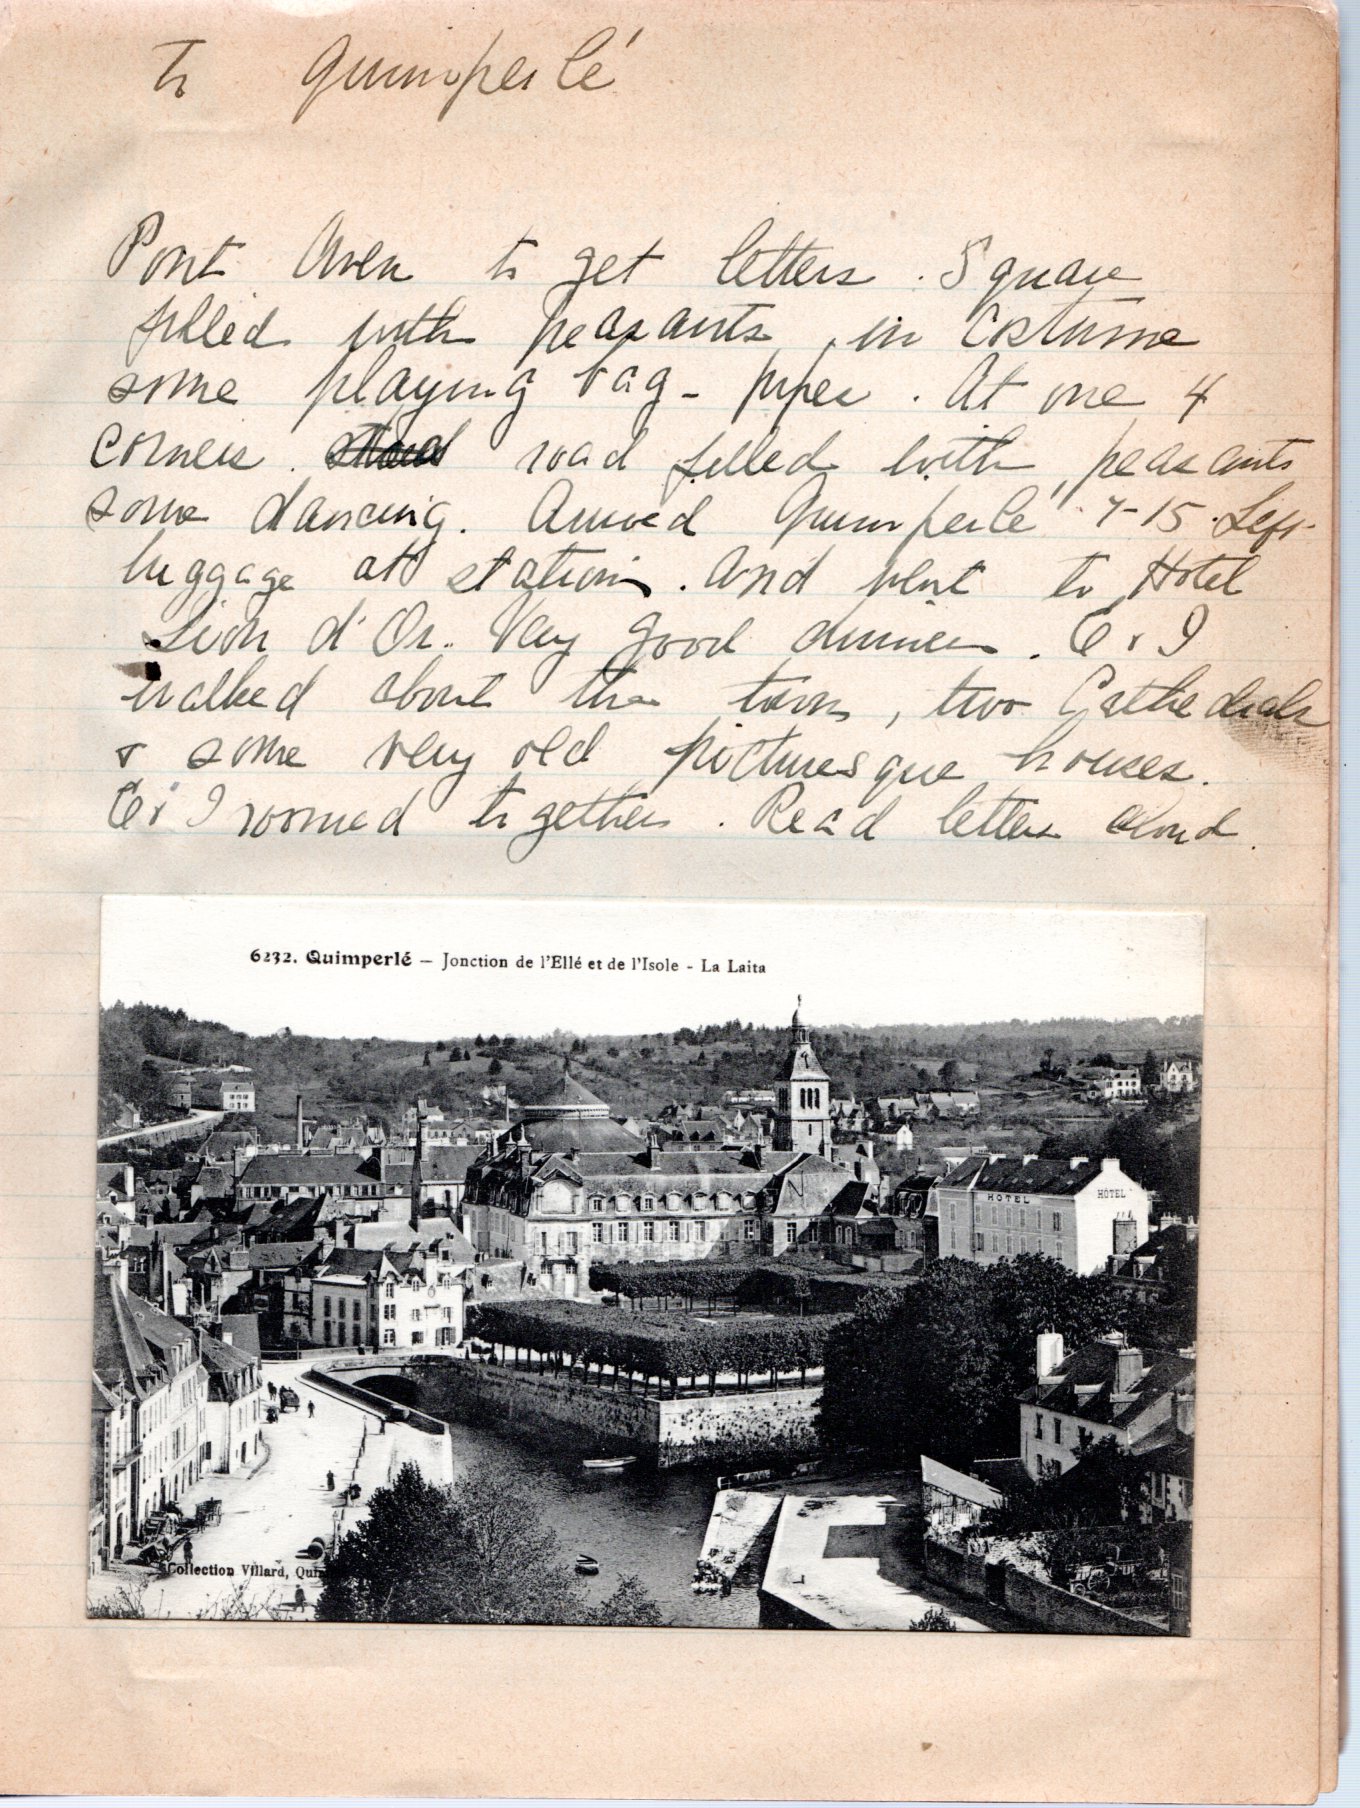 to Quimperlé
Pont Aven to get letters. Square
filled with peasants in costume
some playing bag-pipes. At one 4
corners road filled with peasants
some dancing. Arrived Quimperlé 7-15. Left
luggage at station. And went to Hotel
Lion d'Or. Very good dinner. E & I
walked about the town, two Cathedrals
& some very old picturesque houses.
E & I roomed together. Read letters aloud.
6232. Quimperlé – Jonction de l'Ellé et de l'Isole - La Laita
HOTEL
HÔTEL
Collection Villard, Quim